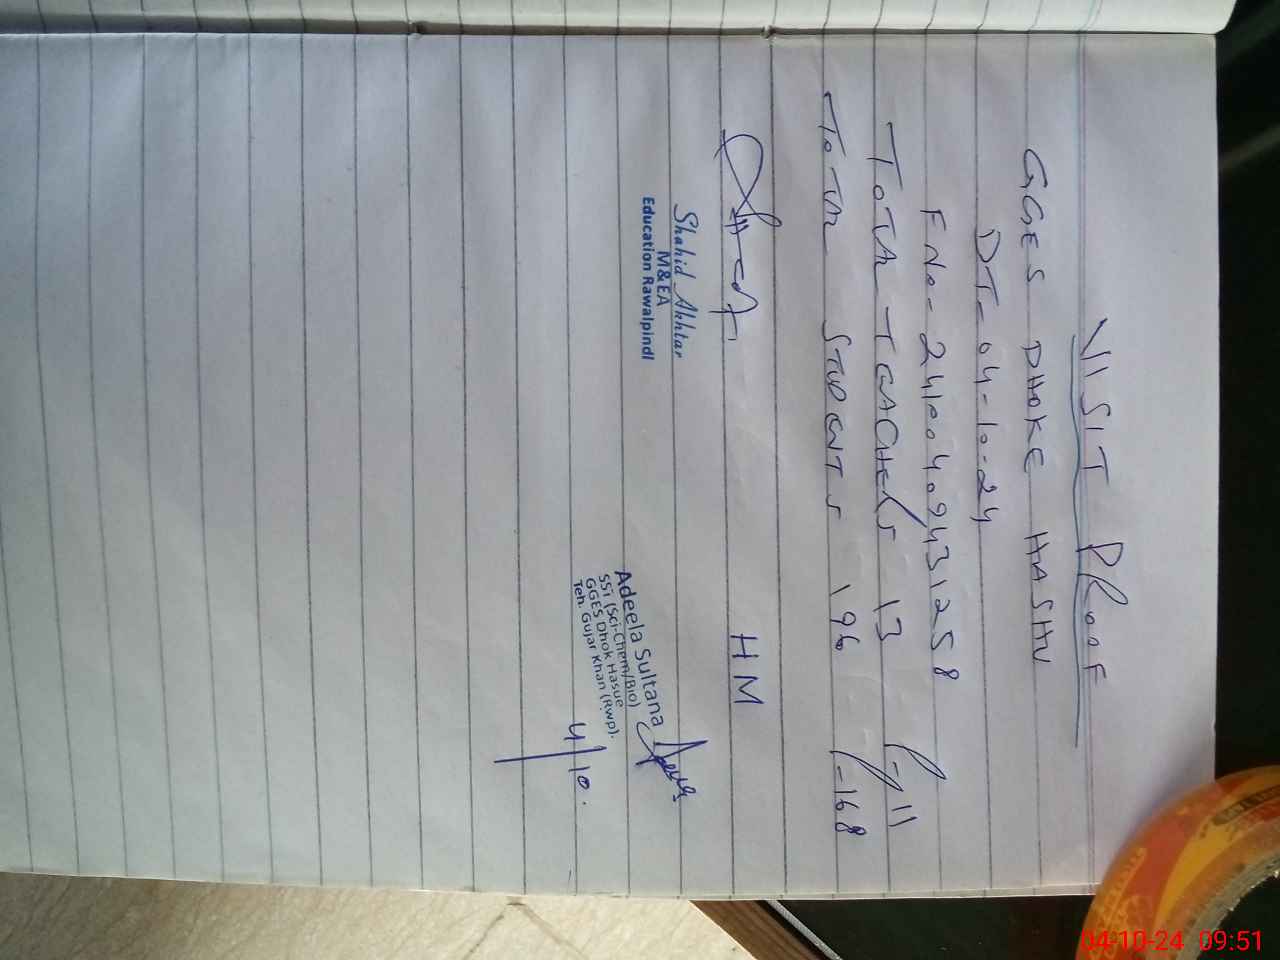 VISIT PROOF
GGES DHOKE HASHU
DT- 04-10-24
F No- 24100409431258
TOTAL TEACHERS 13 P-11
TOTAL STUDENTS 196 P-168
HM
Shahid Akhtar
M & EA
Education Rawalpindi
Adeela Sultana
SST (Sci-Chem/Bio)
GGES Dhok Hasue
Teh. Gujar Khan (Rwp).
4/10.
04-10-24 09:51